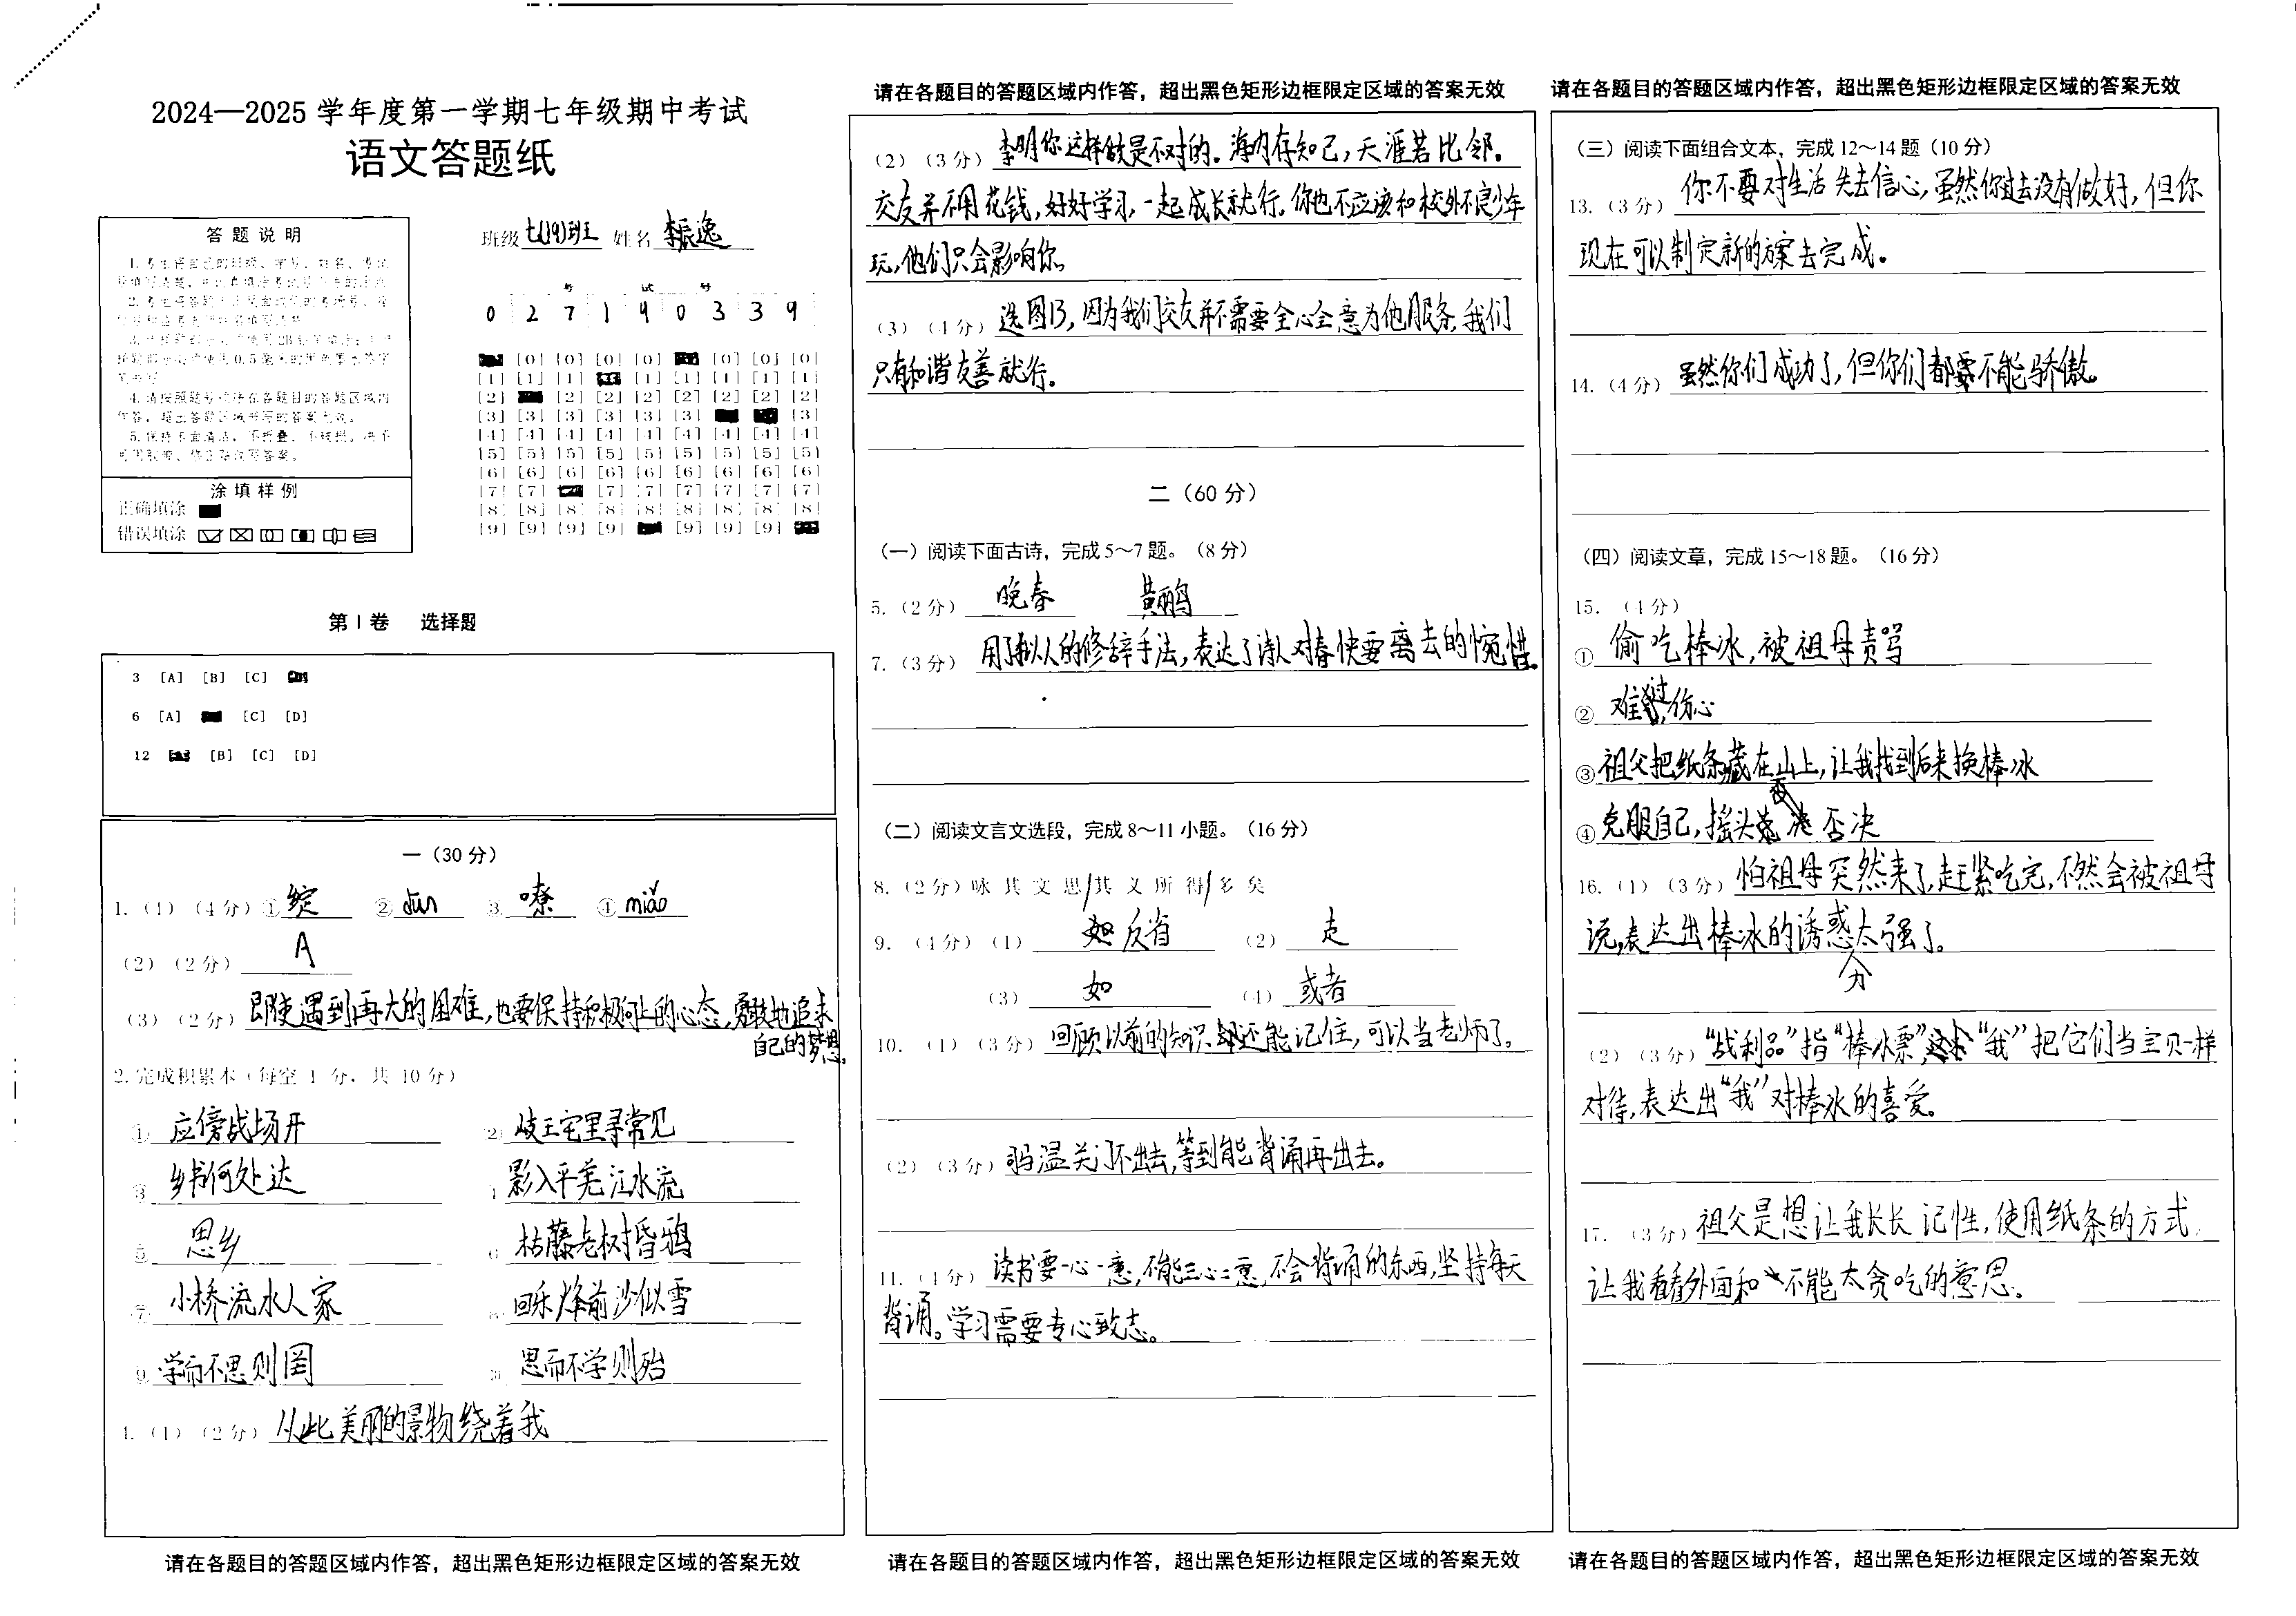 2024—2025 学年度第一学期七年级期中考试
语文答题纸
答 题 说 明
4.请按照题号顺序在各题目的答题区域内
作答，超出答题区域书写的答案无效。
涂 填 样 例
正确填涂
错误填涂
班级 七(19)班 姓名 李振逸
考 试 号
0 2 7 1 9 0 3 3 9
[0] [0] [0] [0] [0] [0] [0]
[1] [1] [1] [1] [1] [1] [1] [1]
[2] [2] [2] [2] [2] [2] [2] [2]
[3] [3] [3] [3] [3] [3] [3]
[4] [4] [4] [4] [4] [4] [4] [4] [4]
[5] [5] [5] [5] [5] [5] [5] [5] [5]
[6] [6] [6] [6] [6] [6] [6] [6] [6]
[7] [7] [7] [7] [7] [7] [7] [7]
[8] [8] [8] [8] [8] [8] [8] [8] [8]
[9] [9] [9] [9] [9] [9] [9]
第Ⅰ卷 选择题
3 [A] [B] [C]
6 [A] [C] [D]
12 [B] [C] [D]
一（30 分）
1.（1）（4 分）① 绽 ② dùn ③ 嘹 ④ miǎo
（2）（2 分） A
（3）（2 分） 即使遇到再大的困难，也要保持积极向上的心态，勇敢地追求
自己的梦想。
2. 完成积累本（每空 1 分，共 10 分）
① 应傍战场开 ② 岐王宅里寻常见
③ 乡书何处达 ④ 影入平羌江水流
⑤ 思乡 ⑥ 枯藤老树昏鸦
⑦ 小桥流水人家 ⑧ 回乐烽前沙似雪
⑨ 学而不思则罔 ⑩ 思而不学则殆
4.（1）（2 分） 从此美丽的景物绕着我
请在各题目的答题区域内作答，超出黑色矩形边框限定区域的答案无效
请在各题目的答题区域内作答，超出黑色矩形边框限定区域的答案无效
（2）（3 分） 李明你这样做是不对的。海内存知己，天涯若比邻。
交友并不用花钱，好好学习，一起成长就行。你也不应该和校外不良少年
玩，他们只会影响你。
（3）（4 分） 选图B，因为我们交友并不需要全心全意为他服务，我们
只有和谐友善就行。
二（60 分）
（一）阅读下面古诗，完成 5～7 题。（8 分）
5.（2 分） 晚春 黄鹂
7.（3 分） 用了拟人的修辞手法，表达了诗人对春快要离去的惋惜。
（二）阅读文言文选段，完成 8～11 小题。（16 分）
8.（2 分）咏 其 文 思/其 义 所 得/多 矣
9.（4 分）（1） 反省 （2） 走
（3） 如 （4） 或者
10.（1）（3 分） 回顾以前的知识还能记住，可以当老师了。
（2）（3 分） 司马温关门不出去，等到能背诵再出去。
11.（4 分） 读书要一心一意，不能三心二意，不会背诵的东西，坚持每天
背诵。学习需要专心致志。
请在各题目的答题区域内作答，超出黑色矩形边框限定区域的答案无效
请在各题目的答题区域内作答，超出黑色矩形边框限定区域的答案无效
（三）阅读下面组合文本，完成 12～14 题（10 分）
13.（3 分） 你不要对生活失去信心，虽然你过去没有做好，但你
现在可以制定新的方案去完成。
14.（4 分） 虽然你们成功了，但你们都不能骄傲。
（四）阅读文章，完成 15～18 题。（16 分）
15.（4 分）
① 偷吃棒冰，被祖母责骂
② 难过，伤心
③ 祖父把纸条藏在山上，让我找到后来换棒冰
④ 克服自己，摇头否决
16.（1）（3 分） 怕祖母突然来了，赶紧吃完，不然会被祖母
说，表达出棒冰的诱惑太强了。
分
（2）（3 分） “战利品”指“棒冰票”，“我”把它们当宝贝一样
对待，表达出“我”对棒冰的喜爱。
17.（3 分） 祖父是想让我长长记性，使用纸条的方式，
让我看看外面和不能太贪吃的意思。
请在各题目的答题区域内作答，超出黑色矩形边框限定区域的答案无效